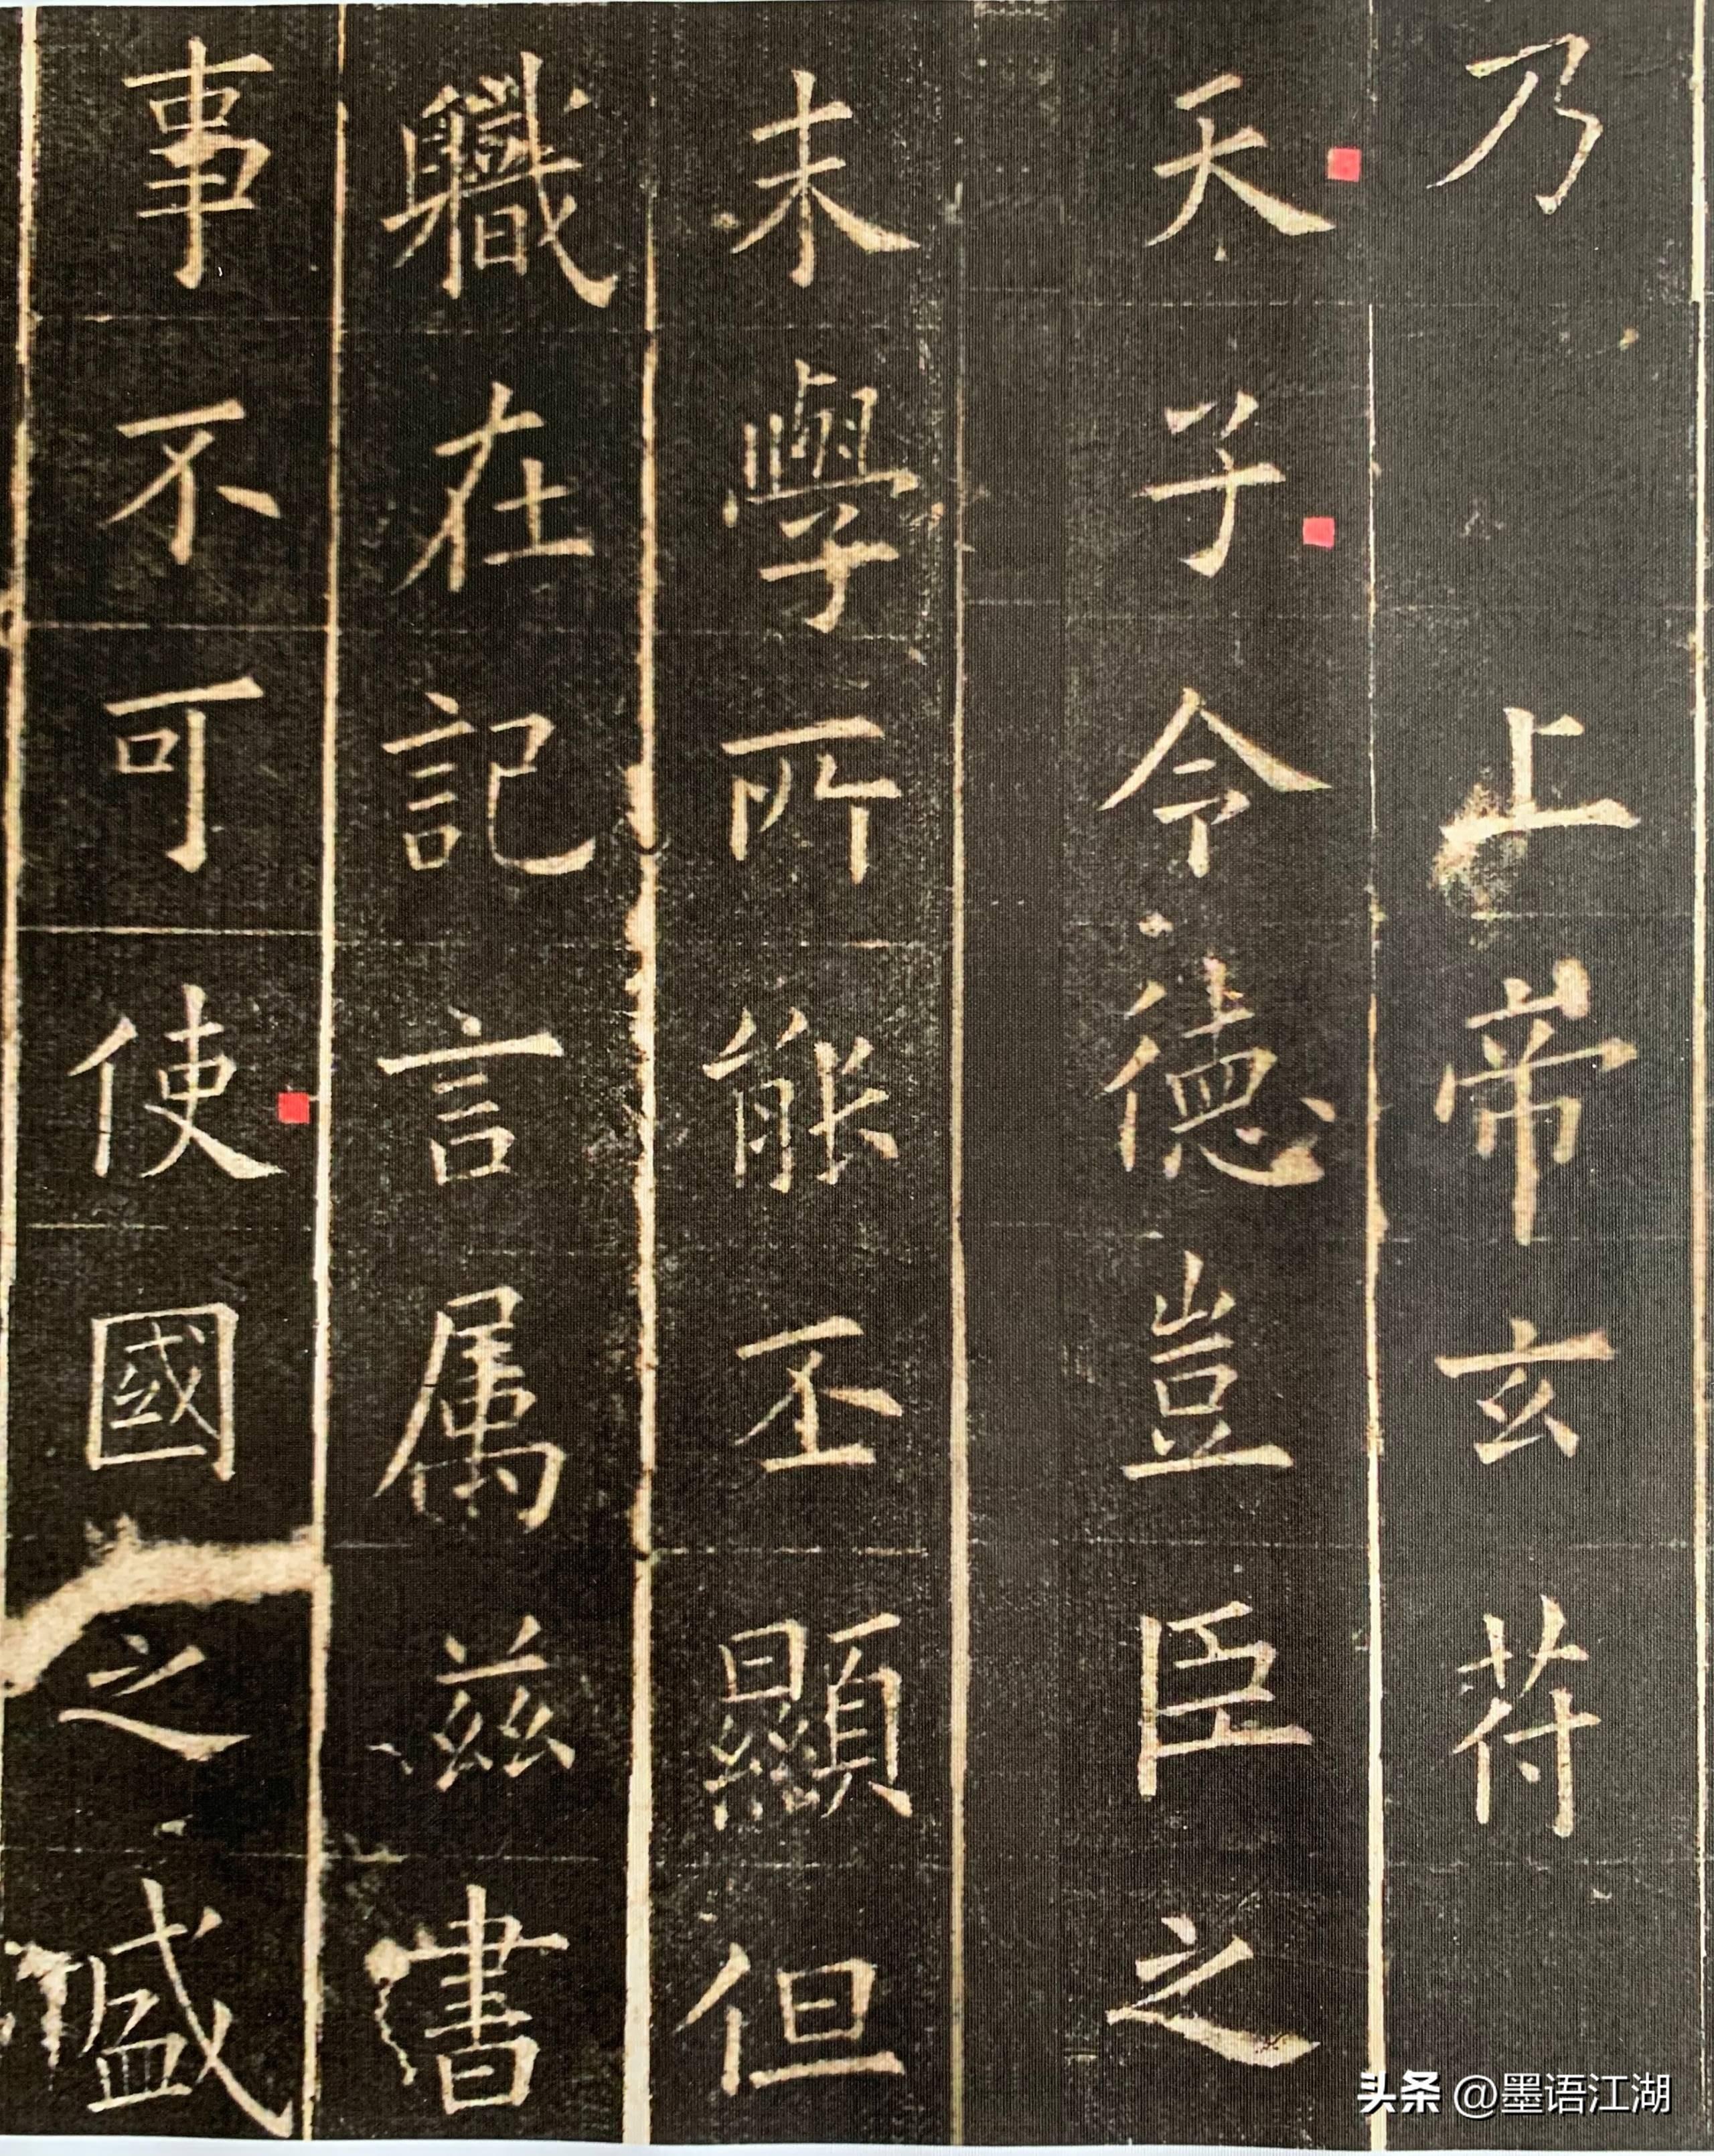 乃 上帝玄符
天子令德豈臣之
末學所能丕顯但
職在記言属兹書
事不可使國之盛
头条 @墨语江湖